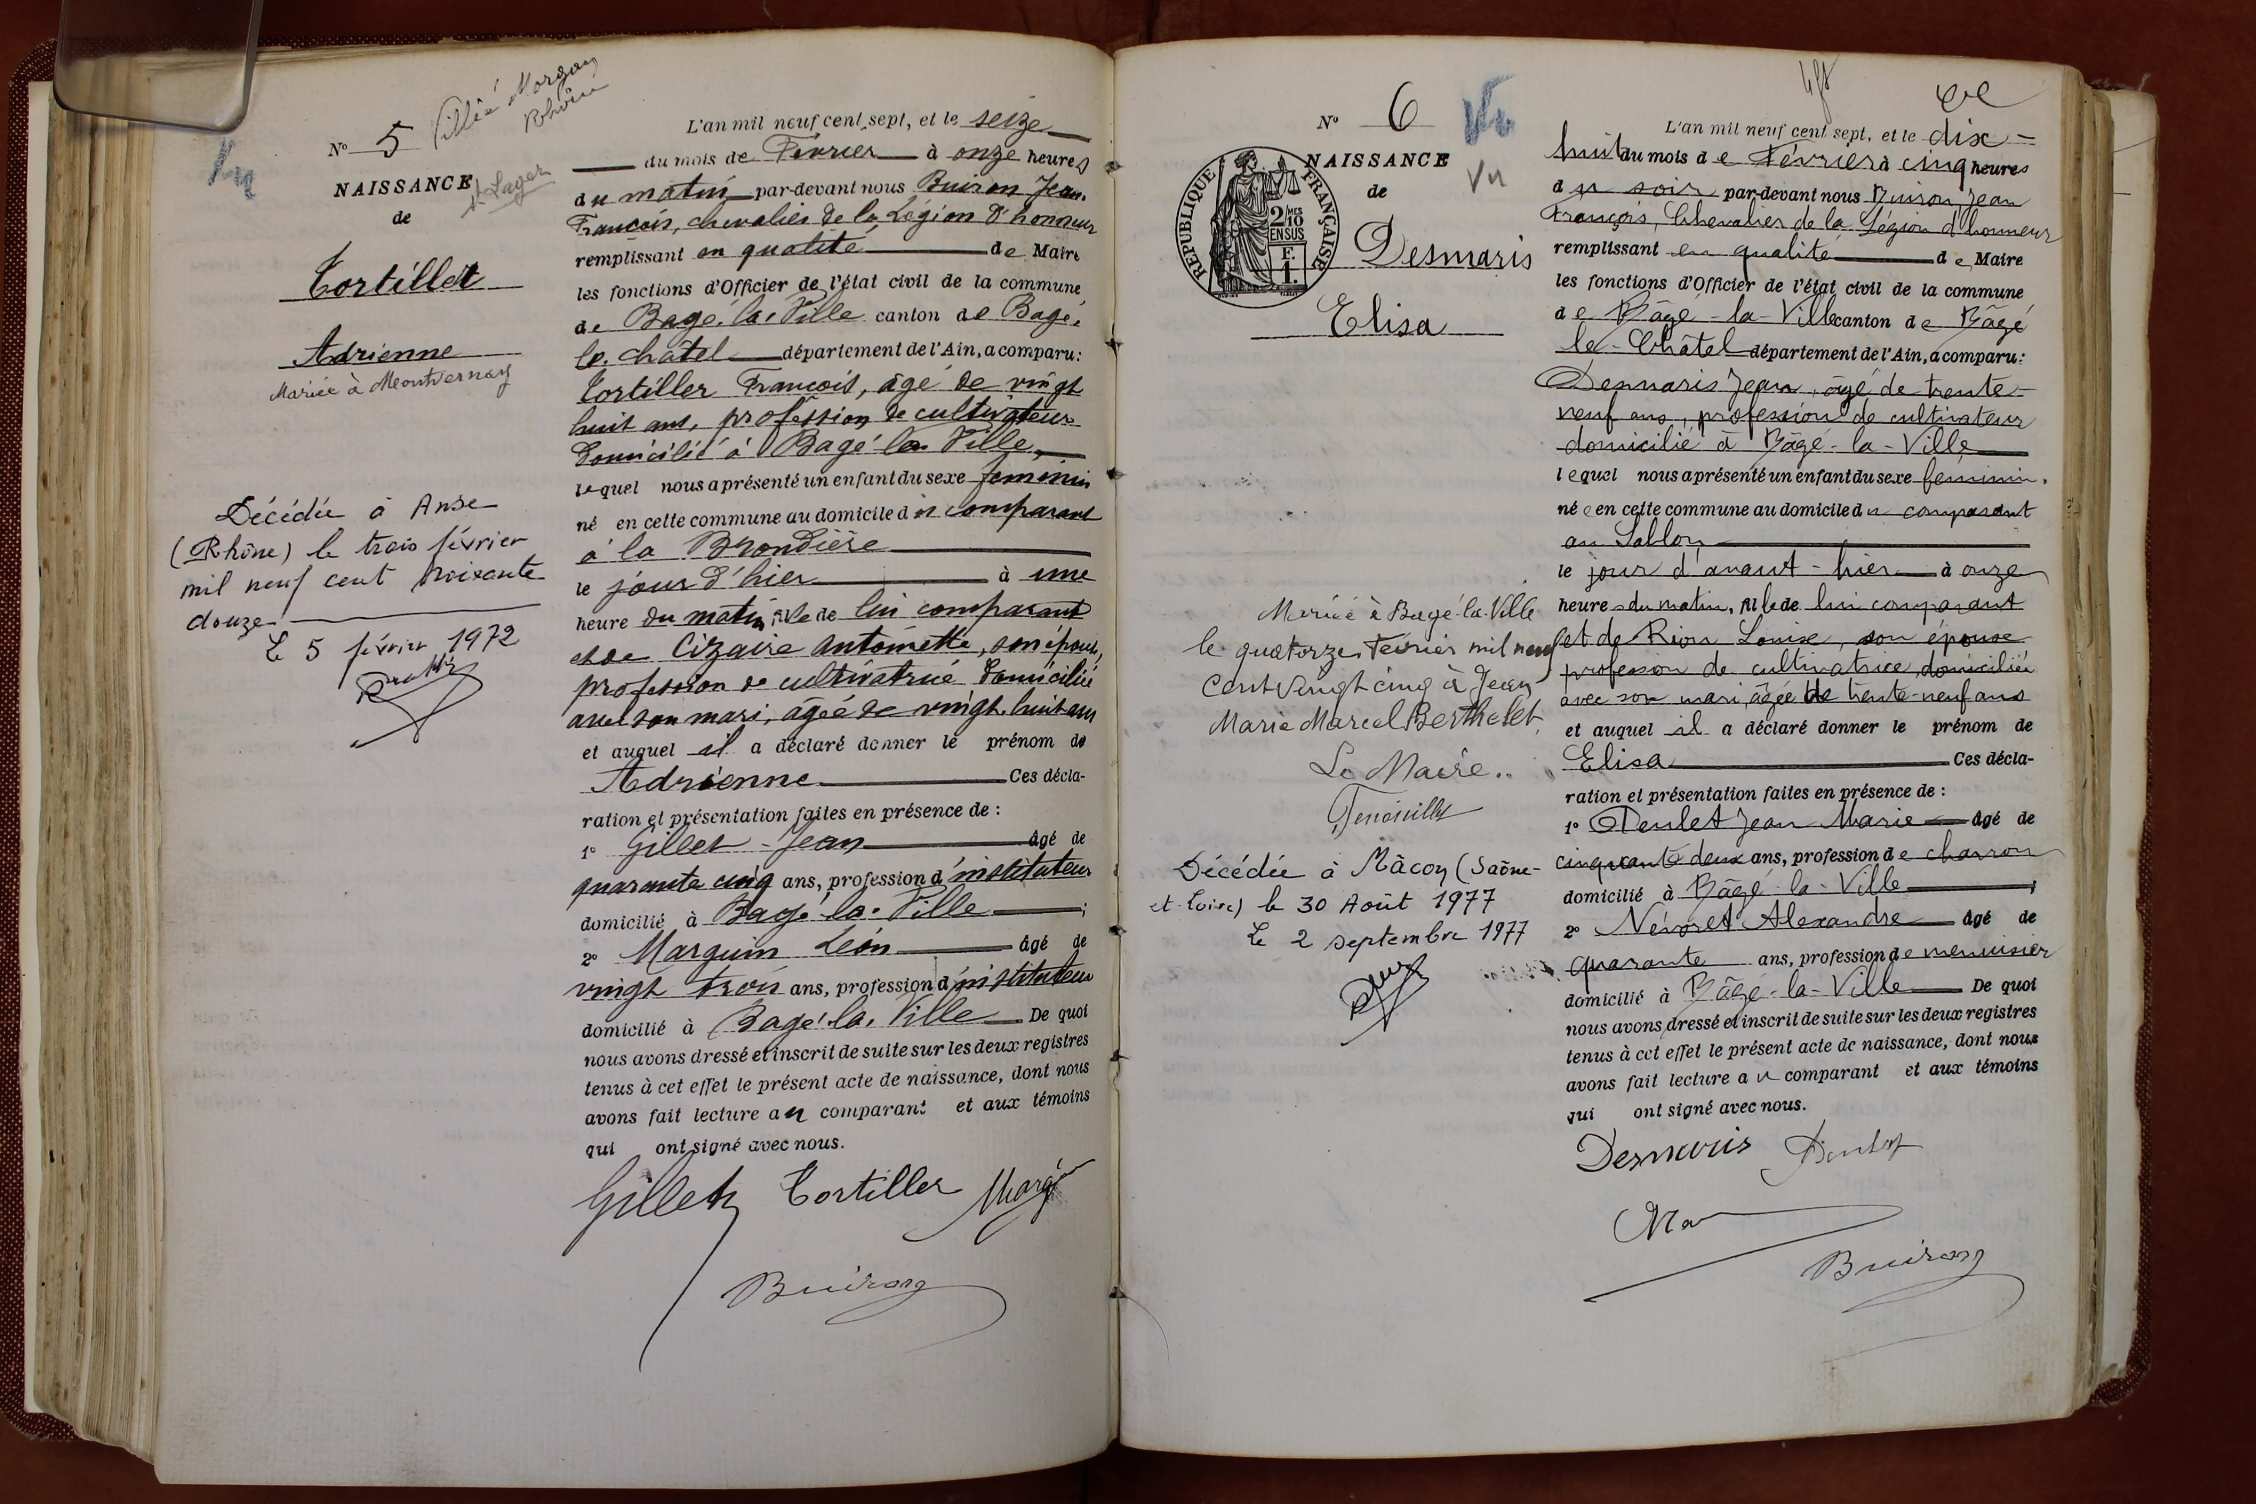 Nº 5
Villié Morgon
Rhône
Vu
NAISSANCE
St Lager
de
Tortillet
Adrienne
Mariée à Montvernay
Décédée à Anse
(Rhône) le trois février
mil neuf cent soixante
douze
Le 5 février 1972
L'an mil neuf cent sept, et le seize
du mois de Février à onze heures
du matin par-devant nous Buiron Jean-
François, chevalier de la Légion d'honneur
remplissant en qualité de Maire
les fonctions d'Officier de l'état civil de la commune
de Bagé-la-Ville canton de Bagé-
le-Châtel département de l'Ain, a comparu :
Tortiller François, âgé de vingt
huit ans, profession de cultivateur
domicilié à Bagé la Ville,
lequel nous a présenté un enfant du sexe feminin
né en cette commune au domicile du comparant
à la Brondière
le jour d'hier à une
heure du matin, fille de lui comparant
et de Cizaire Antoinette, son épouse,
profession de cultivatrice domiciliée
avec son mari, âgée de vingt-huit ans
et auquel il a déclaré donner le prénom de
Adrienne Ces décla-
ration et présentation faites en présence de :
1º Gillet Jean âgé de
quarante cinq ans, profession d'instituteur
domicilié à Bagé-la-Ville ;
2º Marguin Léon âgé de
vingt trois ans, profession d'instituteur
domicilié à Bagé-la-Ville De quoi
nous avons dressé et inscrit de suite sur les deux registres
tenus à cet effet le présent acte de naissance, dont nous
avons fait lecture au comparant et aux témoins
qui ont signé avec nous.
Gillet Tortiller Marg
Buiron
Nº 6
Vu
NAISSANCE
Vu
de
RÉPUBLIQUE FRANÇAISE
2/10MES
EN SUS
1 F.
Desmaris
Elisa
Mariée à Bagé-la-Ville
le quatorze Février mil neuf
cent vingt cinq à Jean
Marie Marcel Berthelet
Le Maire.
Décédée à Mâcon (Saône-
et-Loire) le 30 Août 1977
Le 2 septembre 1977
L'an mil neuf cent sept, et le dix-
huit du mois de Février à cinq heures
du soir par-devant nous Buiron, Jean
François, Chevalier de la Légion d'honneur
remplissant en qualité de Maire
les fonctions d'Officier de l'état civil de la commune
de Bâgé-la-Ville canton de Bâgé
le-Châtel département de l'Ain, a comparu :
Desmaris Jean, âgé de trente-
neuf ans, profession de cultivateur
domicilié à Bâgé-la-Ville
lequel nous a présenté un enfant du sexe féminin.
née en cette commune au domicile du comparant
au Sablon
le jour d'avant-hier à onze
heures du matin, fille de lui comparant
et de Rion Louise, son épouse
profession de cultivatrice, domiciliée
avec son mari, âgée de trente-neuf ans
et auquel il a déclaré donner le prénom de
Elisa Ces décla-
ration et présentation faites en présence de :
1º Jean Marie âgé de
cinquante deux ans, profession de charron
domicilié à Bâgé-la-Ville ;
2º Névoret Alexandre âgé de
quarante ans, profession de menuisier
domicilié à Bâgé-la-Ville De quoi
nous avons dressé et inscrit de suite sur les deux registres
tenus à cet effet le présent acte de naissance, dont nous
avons fait lecture au comparant et aux témoins
qui ont signé avec nous.
Desmaris
Buiron